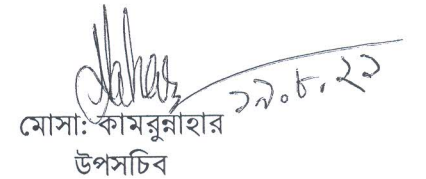 ১৯.৮.২১
মোসা: কামরুন্নাহার
উপসচিব